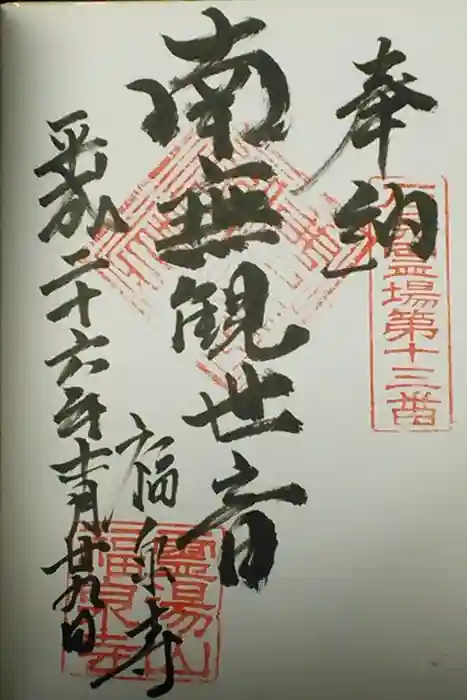 奉納
霊場第十三番
南無観世音
福泉寺
霊場山
福泉寺
平成二十六年十月廿九日